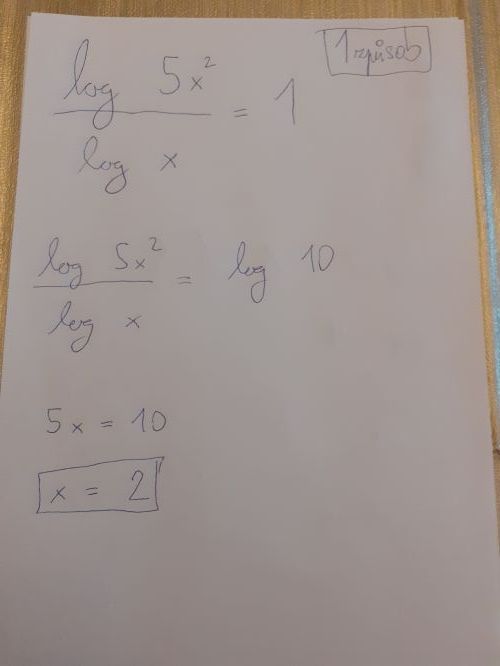 1 způsob
log 5x² / log x = 1
log 5x² / log x = log 10
5x = 10
x = 2